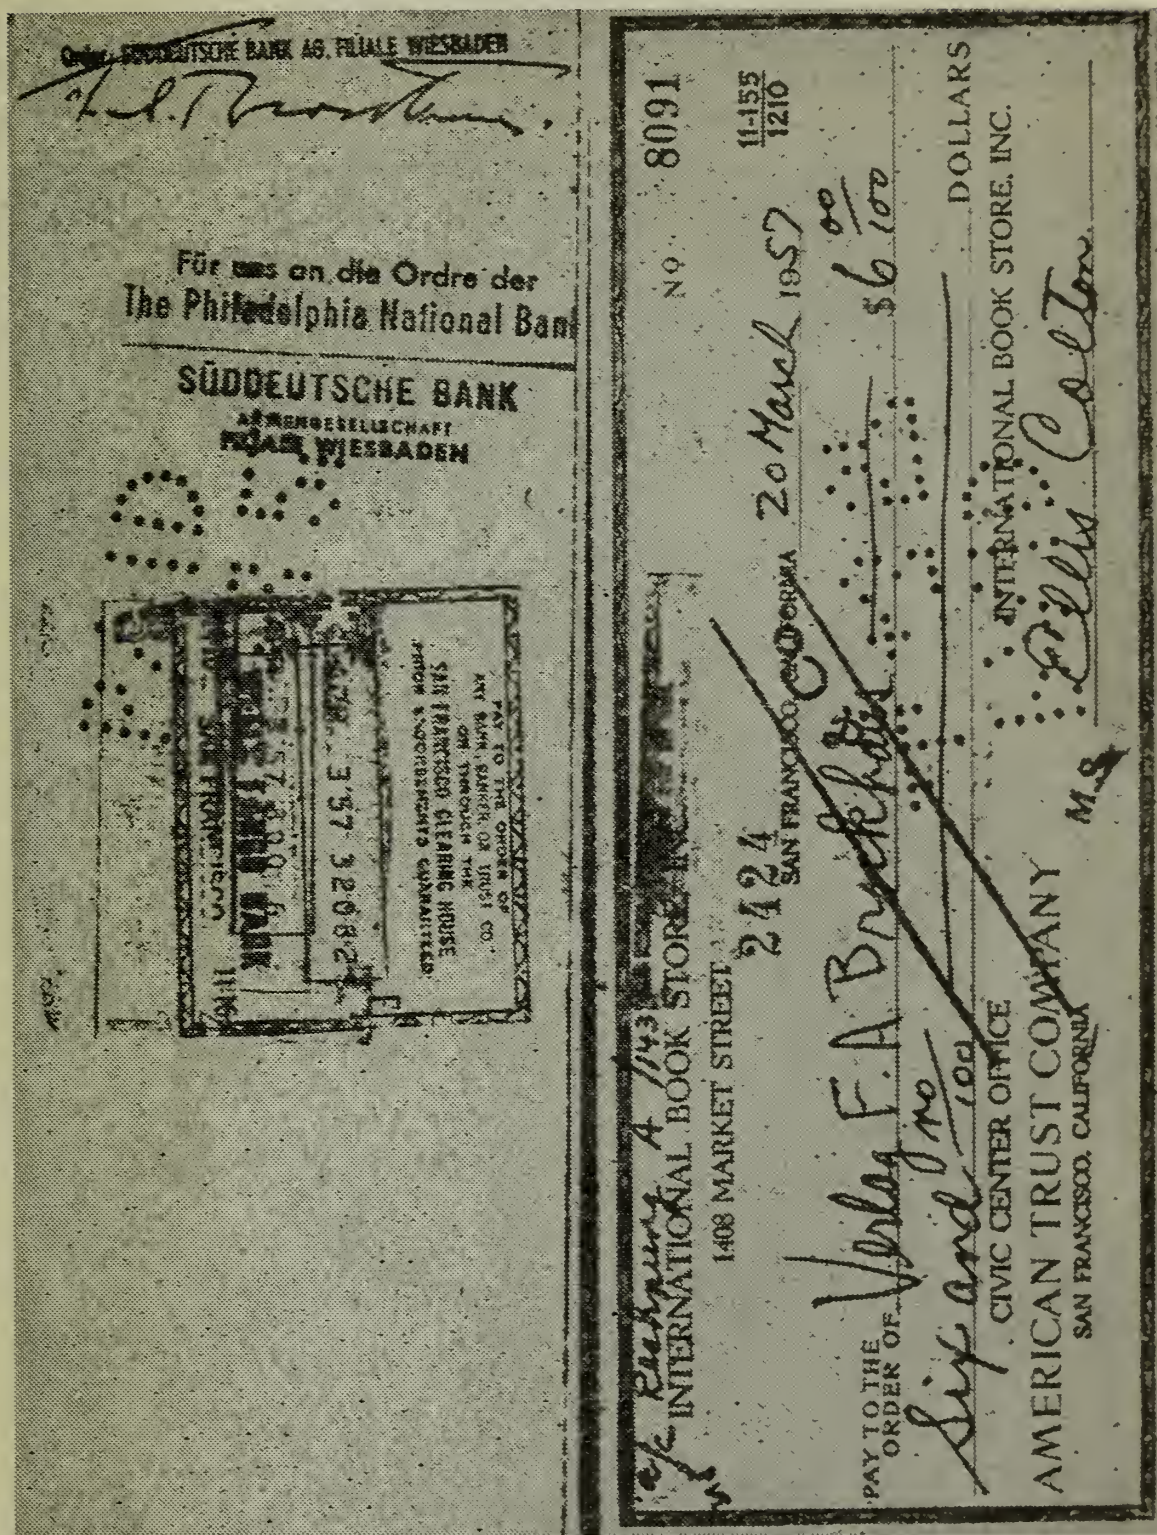 Order SÜDDEUTSCHE BANK AG. FILIALE WIESBADEN
Für uns an die Ordre der
The Philadelphia National Bank
SÜDDEUTSCHE BANK
AKTIENGESELLSCHAFT
FILIALE WIESBADEN
PAID
PAY TO THE ORDER OF
ANY BANK, BANKER OR TRUST CO.
OR THROUGH THE
SAN FRANCISCO CLEARING HOUSE
PRIOR ENDORSEMENTS GUARANTEED
357 32082
SAN FRANCISCO
11-
a/c Rechnung A 1143
INTERNATIONAL BOOK STORE INC
1408 MARKET STREET
NO. 8091
2424
11-155
1210
SAN FRANCISCO, CALIFORNIA 20 March 1957
PAY TO THE
ORDER OF Verlag F. A Brockhaus $ 6 00/100
Six and no/100 DOLLARS
CIVIC CENTER OFFICE
INTERNATIONAL BOOK STORE, INC.
AMERICAN TRUST COMPANY
SAN FRANCISCO, CALIFORNIA
Ellis Colton